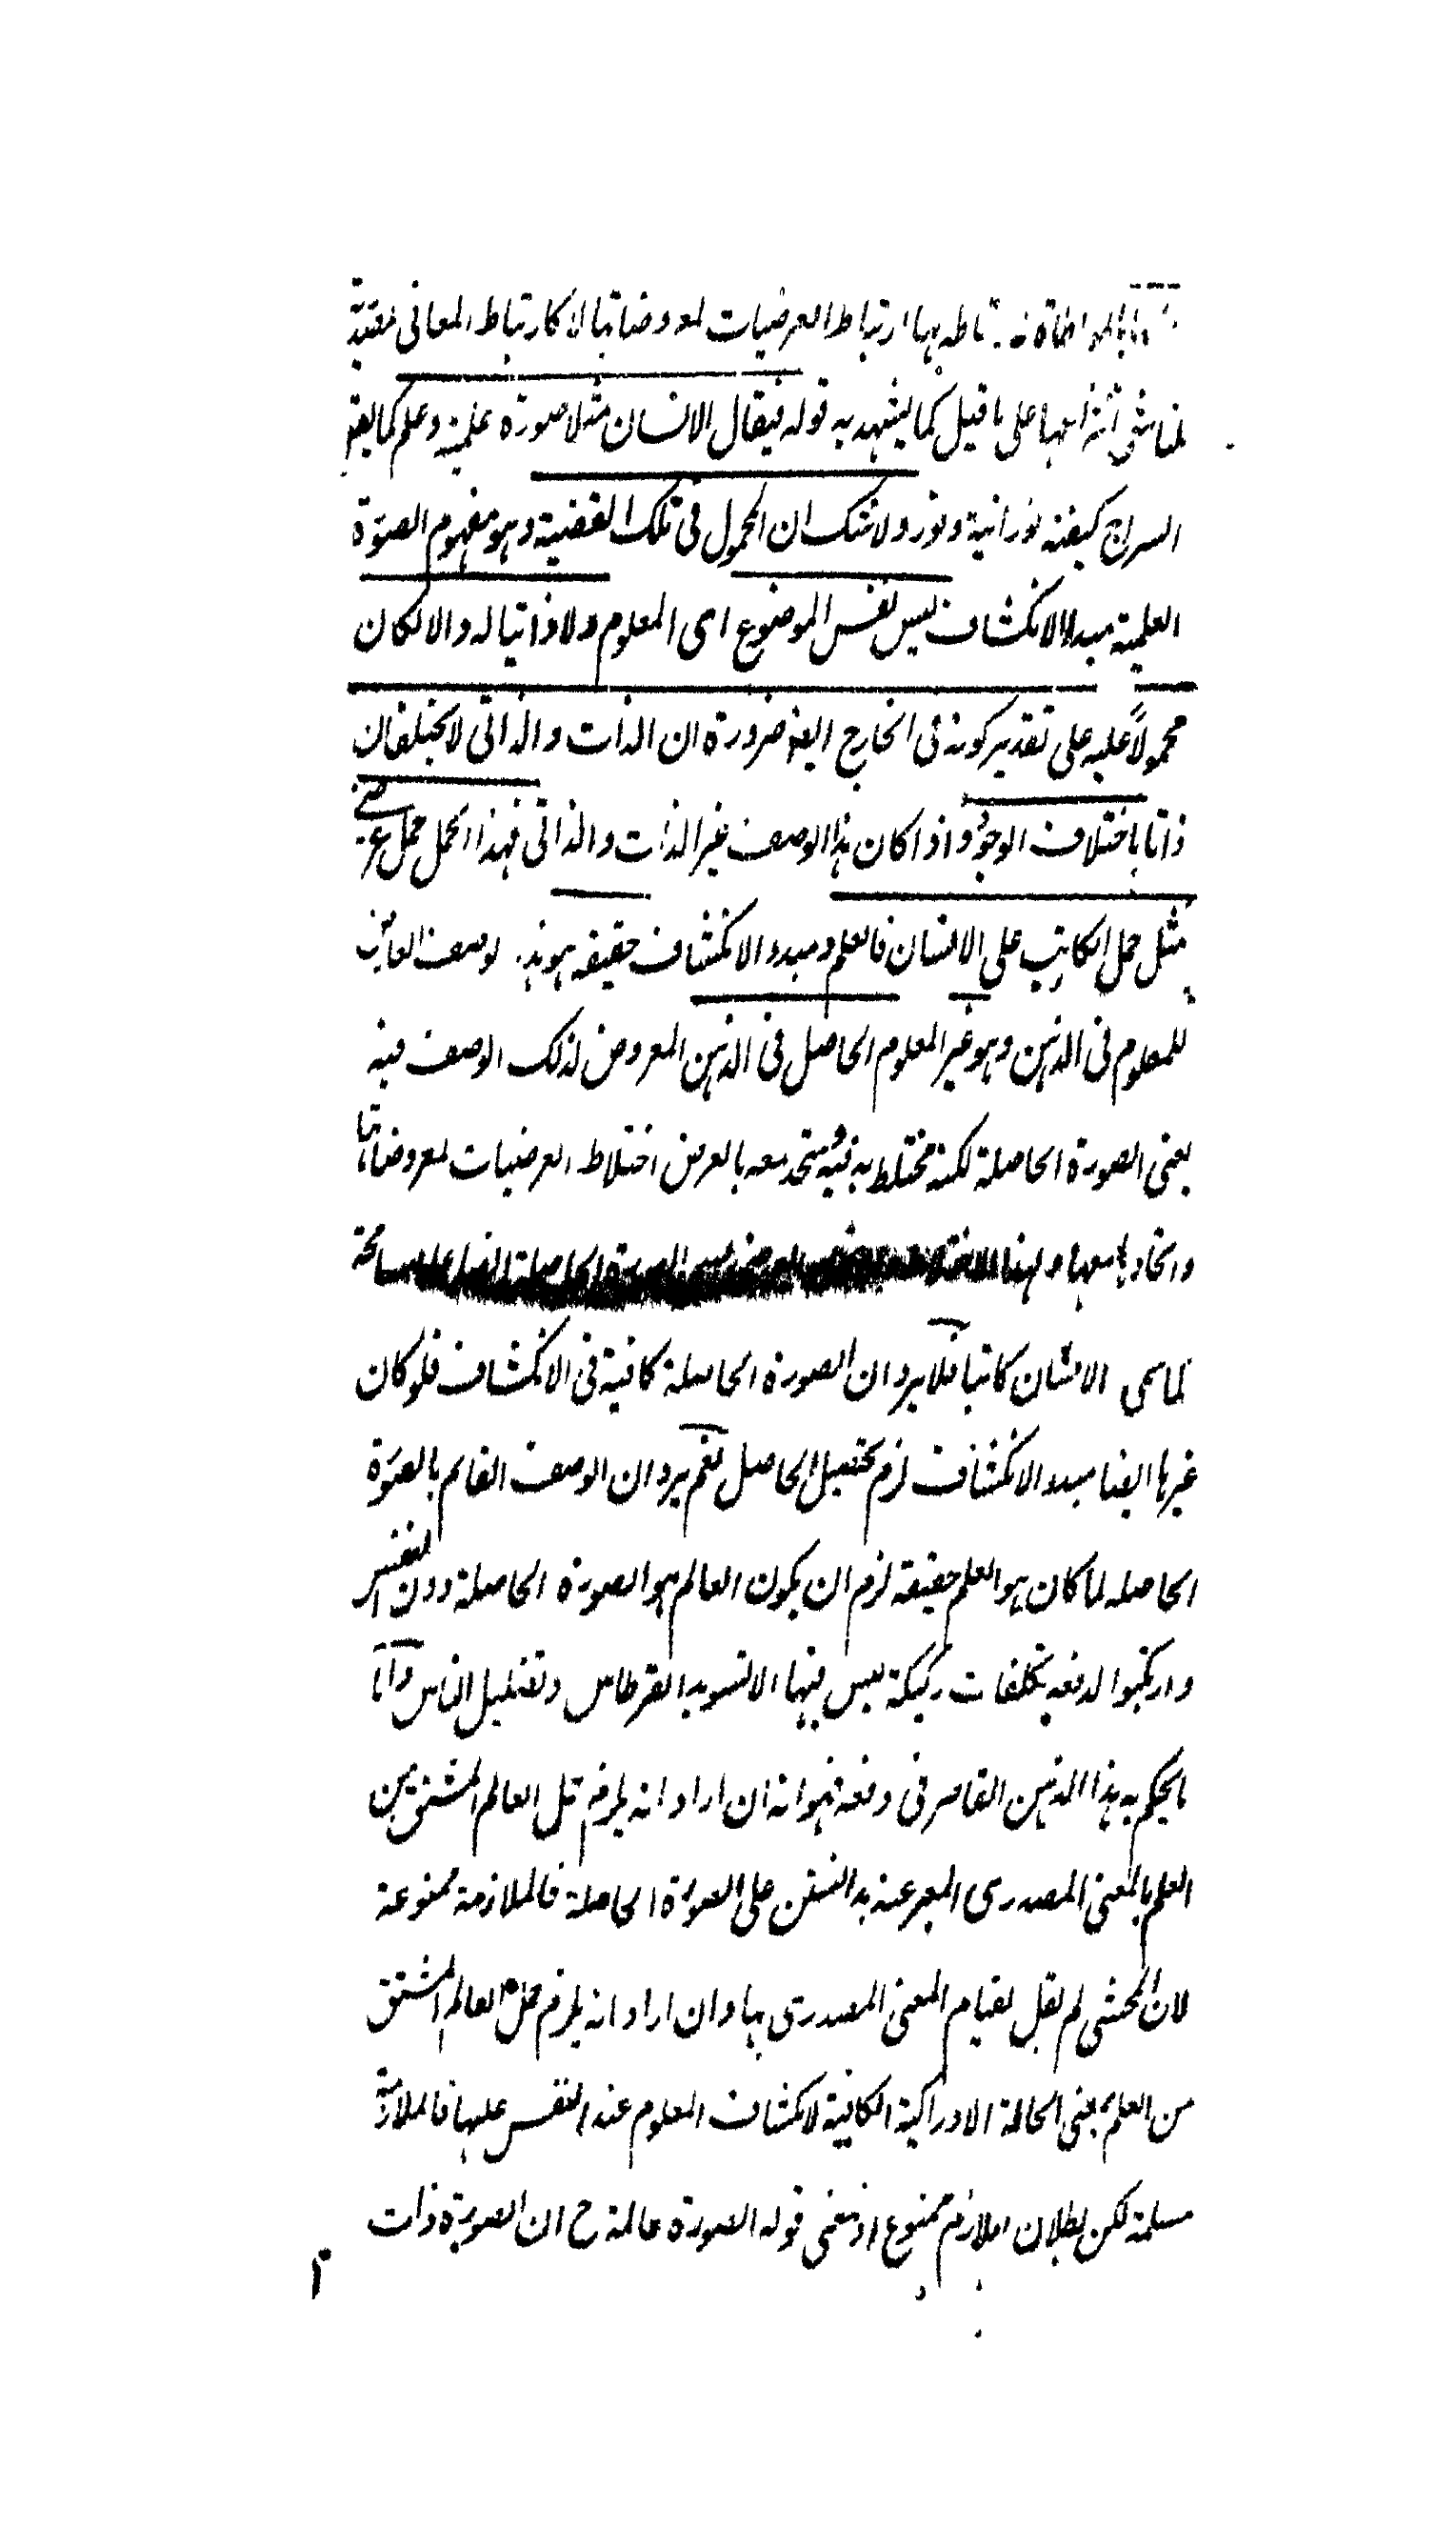 ارتباط العرضيات لمعروضاتها لا كارتباط المعانى
انتزاعها على ما قيل كما يشهد به قوله فيقال الانسان مثلا صورة علمية وعلم كما يقال
السراج كيفية نورانية ونور ولا شك ان المحمول فى تلك القضية وهو مفهوم الصورة
العلمية مبدء الانكشاف ليس نفس الموضوع اى المعلوم ولا ذاتيا له والا لكان
محمولاً عليه على تقدير كونه فى الخارج ايضا ضرورة ان الذات والذاتى لا يختلفان
ذاتا باختلاف الوجود واذا كان هذا الوصف غير الذات والذاتى فهذا الحمل حمل عرضى
مثل حمل الكاتب على الانسان فالعلم ومبدء الانكشاف حقيقة هو هذا الوصف العارض
للمعلوم فى الذهن وهو غير المعلوم الحاصل فى الذهن المعروض لذلك الوصف فيه
يعنى الصورة الحاصلة لكنه مختلط به فيه ومتحد معه بالعرض اختلاط العرضيات لمعروضاتها
واتحادها معها ولهذا الاختلاط العرضى يسمى الصورة الحاصلة ايضا علما مسامحة
كما سمى الانسان كاتبا فلا يرد ان الصورة الحاصلة كافية فى الانكشاف فلو كان
غيرها ايضا مبدء الانكشاف لزم تحصيل الحاصل نعم يرد ان الوصف القائم بالصورة
الحاصلة لما كان هو العلم حقيقة لزم ان يكون العالم هو الصورة الحاصلة دون النفس
وارتكبوا لدفعه تكلفات ركيكة ليس فيها الا تسويد القرطاس وتضليل الناس واما
ما يحكم به هذا الذهن القاصر فى دفعه فهو انه ان اراد انه يلزم حمل العالم المشتق من
العلم بالمعنى المصدرى المعبر عنه بدانستن على الصورة الحاصلة فالملازمة ممنوعة
لان المحشى لم يقل بقيام المعنى المصدرى بها وان اراد انه يلزم حمل العالم المشتق
من العلم بمعنى الحالة الادراكية الكافية لانكشاف المعلوم عند النفس عليها فالملازمة
مسلمة لكن بطلان اللازم ممنوع اذ معنى قوله الصورة عالمة ح ان الصورة ذات